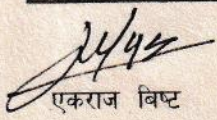 एकराज बिष्ट